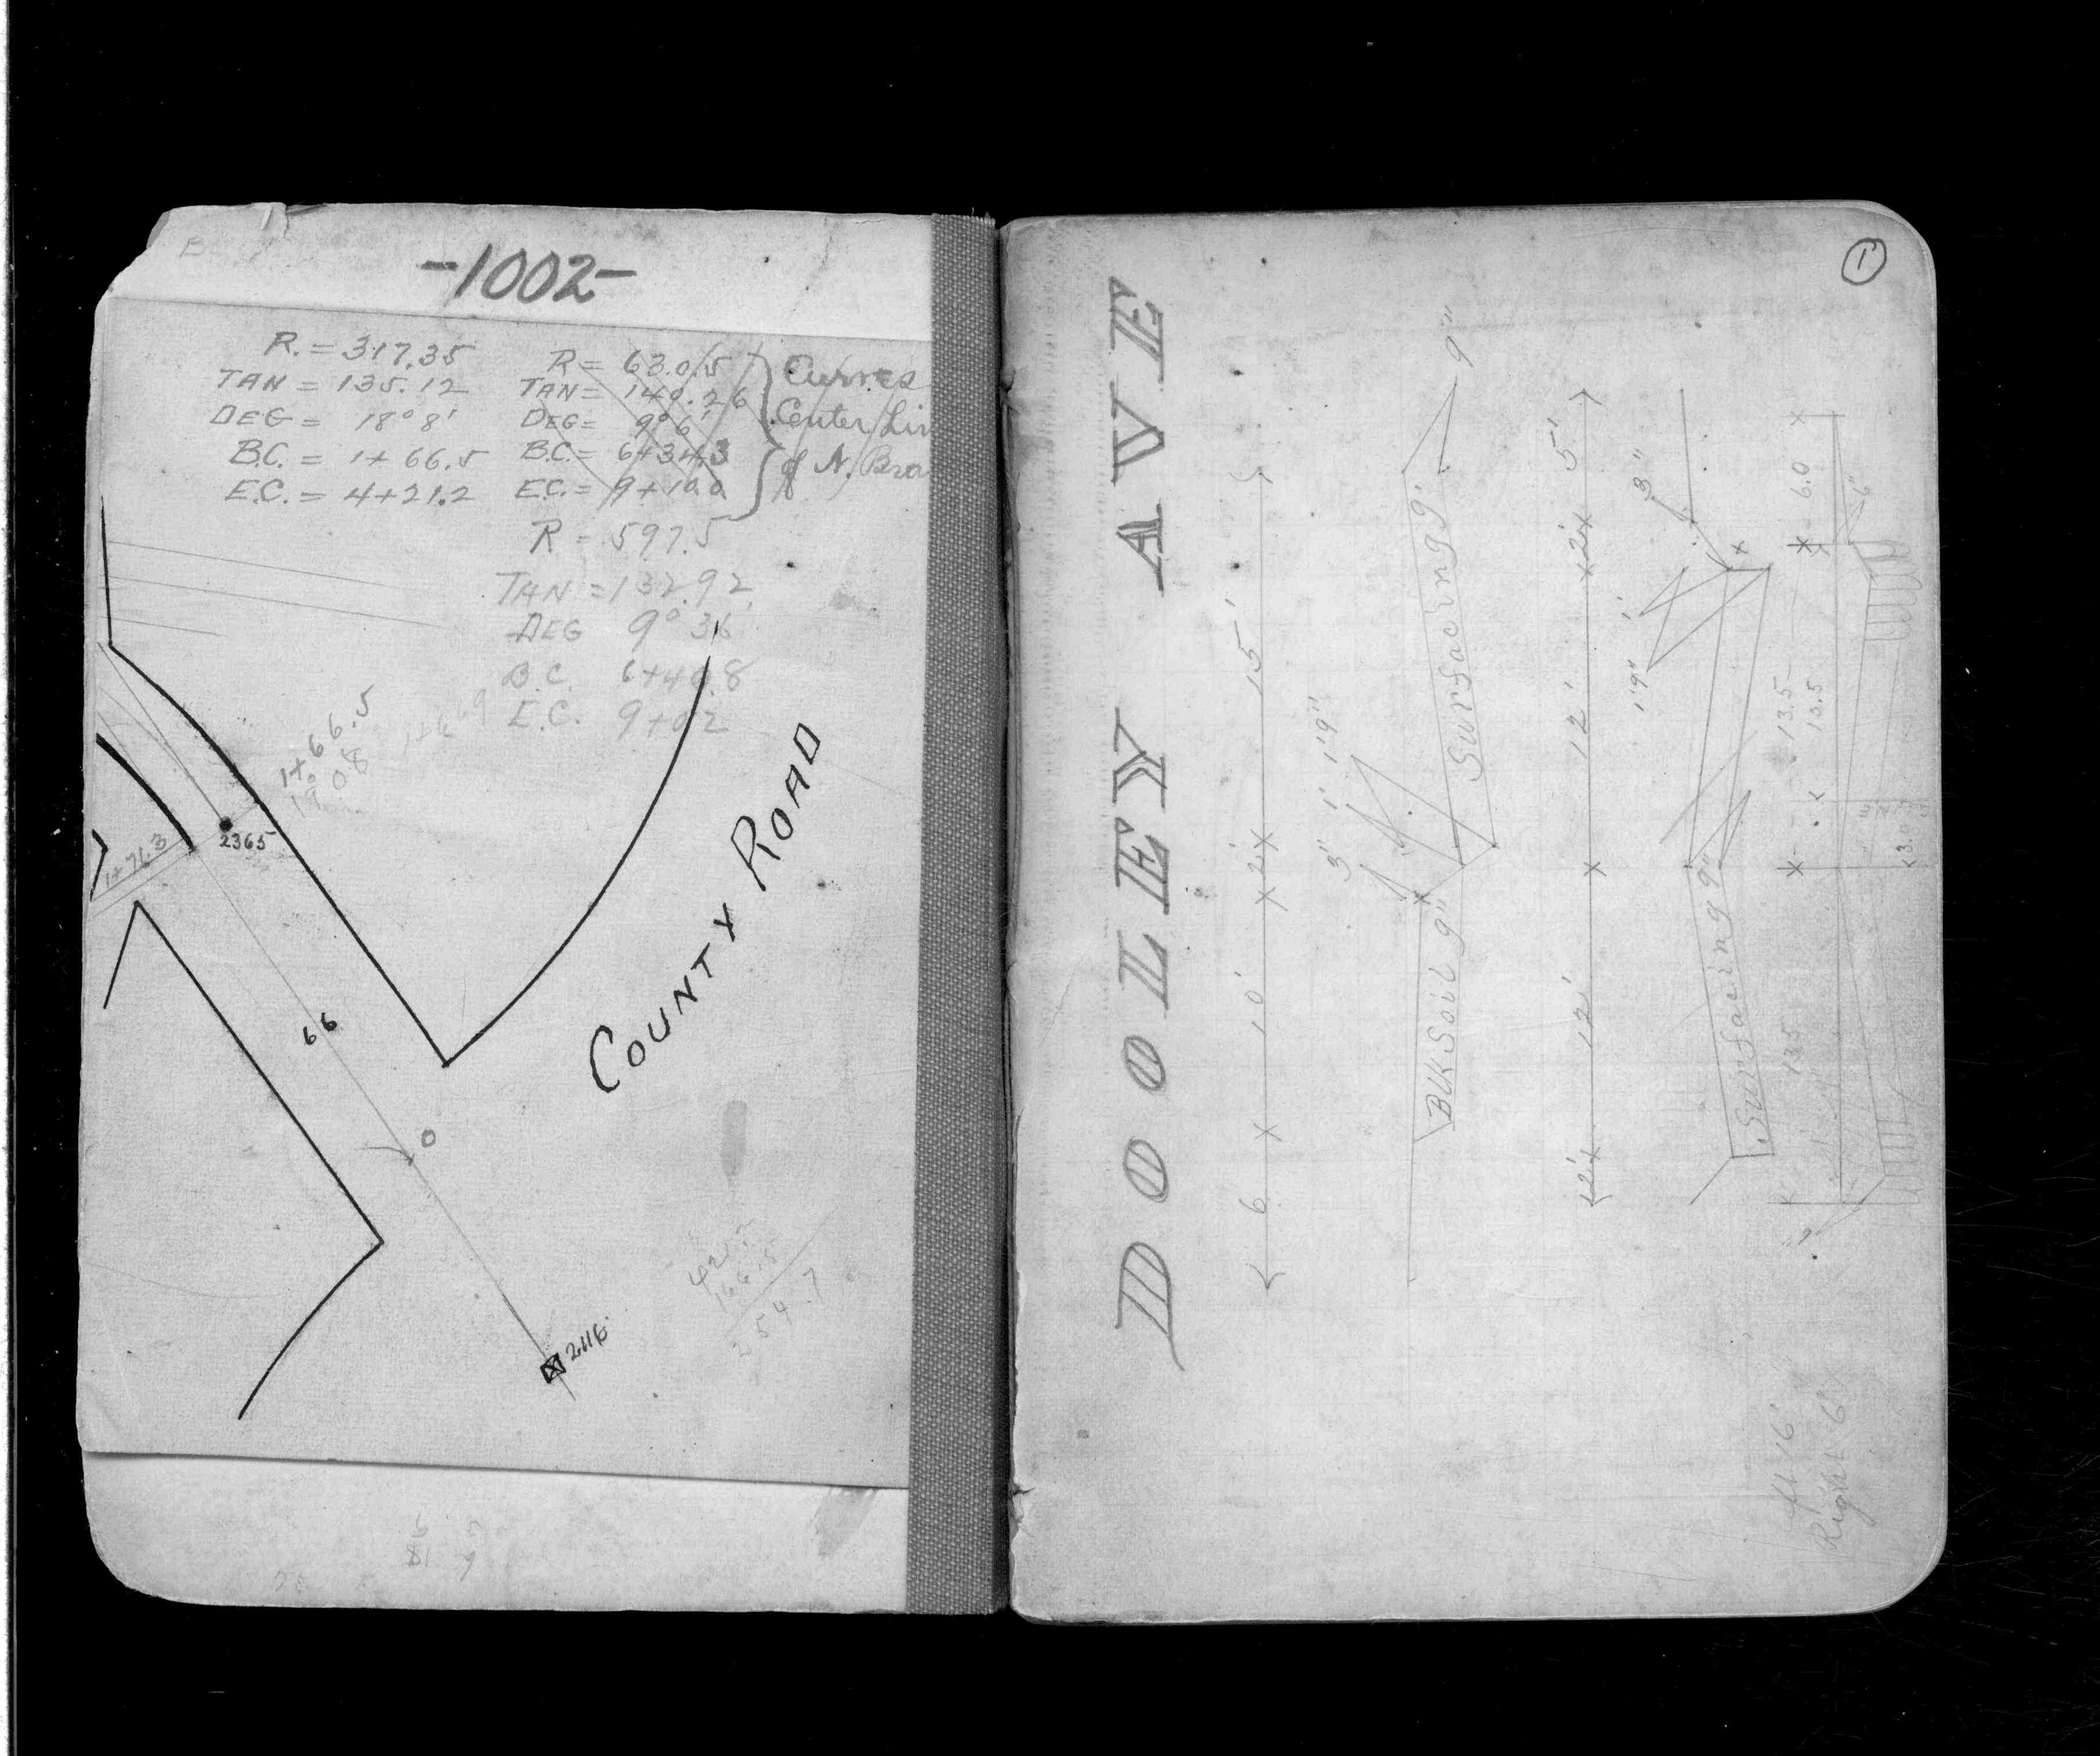 -1002-
R. = 317.35
TAN = 135.12
DEG = 18° 8'
B.C. = 1+66.5
E.C. = 4+21.2
R = 630.5
TAN = 140.26
DEG = 9° 6'
B.C. = 6+34.3
E.C. = 9+10.0
Curves
Center Lin
of N. Bro
R = 597.5
TAN = 132.92
DEG 9° 36
B.C. 6+40.8
E.C. 9+07.2
1+66.5
19.08
2365
1+76.3
66
COUNTY ROAD
0
2116
421.2
166.5
254.7
1
DOOLEY AVE
6 10' 2' 15'
3" 1' 1'9"
BLK Soil 9" Surfacing 9" 9"
2' 12' 12' 2' 5'
1'9" 1' 3"
Surfacing 9"
13.5 13.5 6.0
10.5
6"
3.0
16'
Right 6'